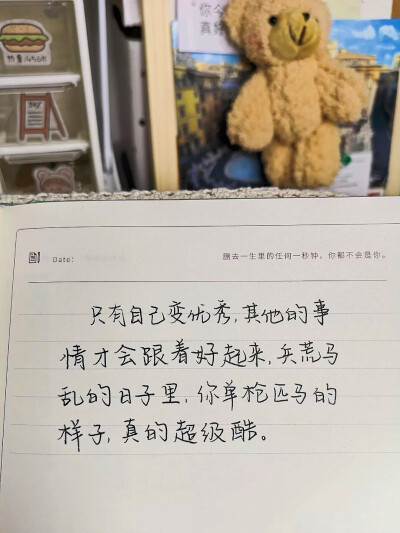 “你今
真棒
热量4456K
Date:
删去一生里的任何一秒钟，你都不会是你。
只有自己变优秀,其他的事
情才会跟着好起来,兵荒马
乱的日子里,你单枪匹马的
样子,真的超级酷。